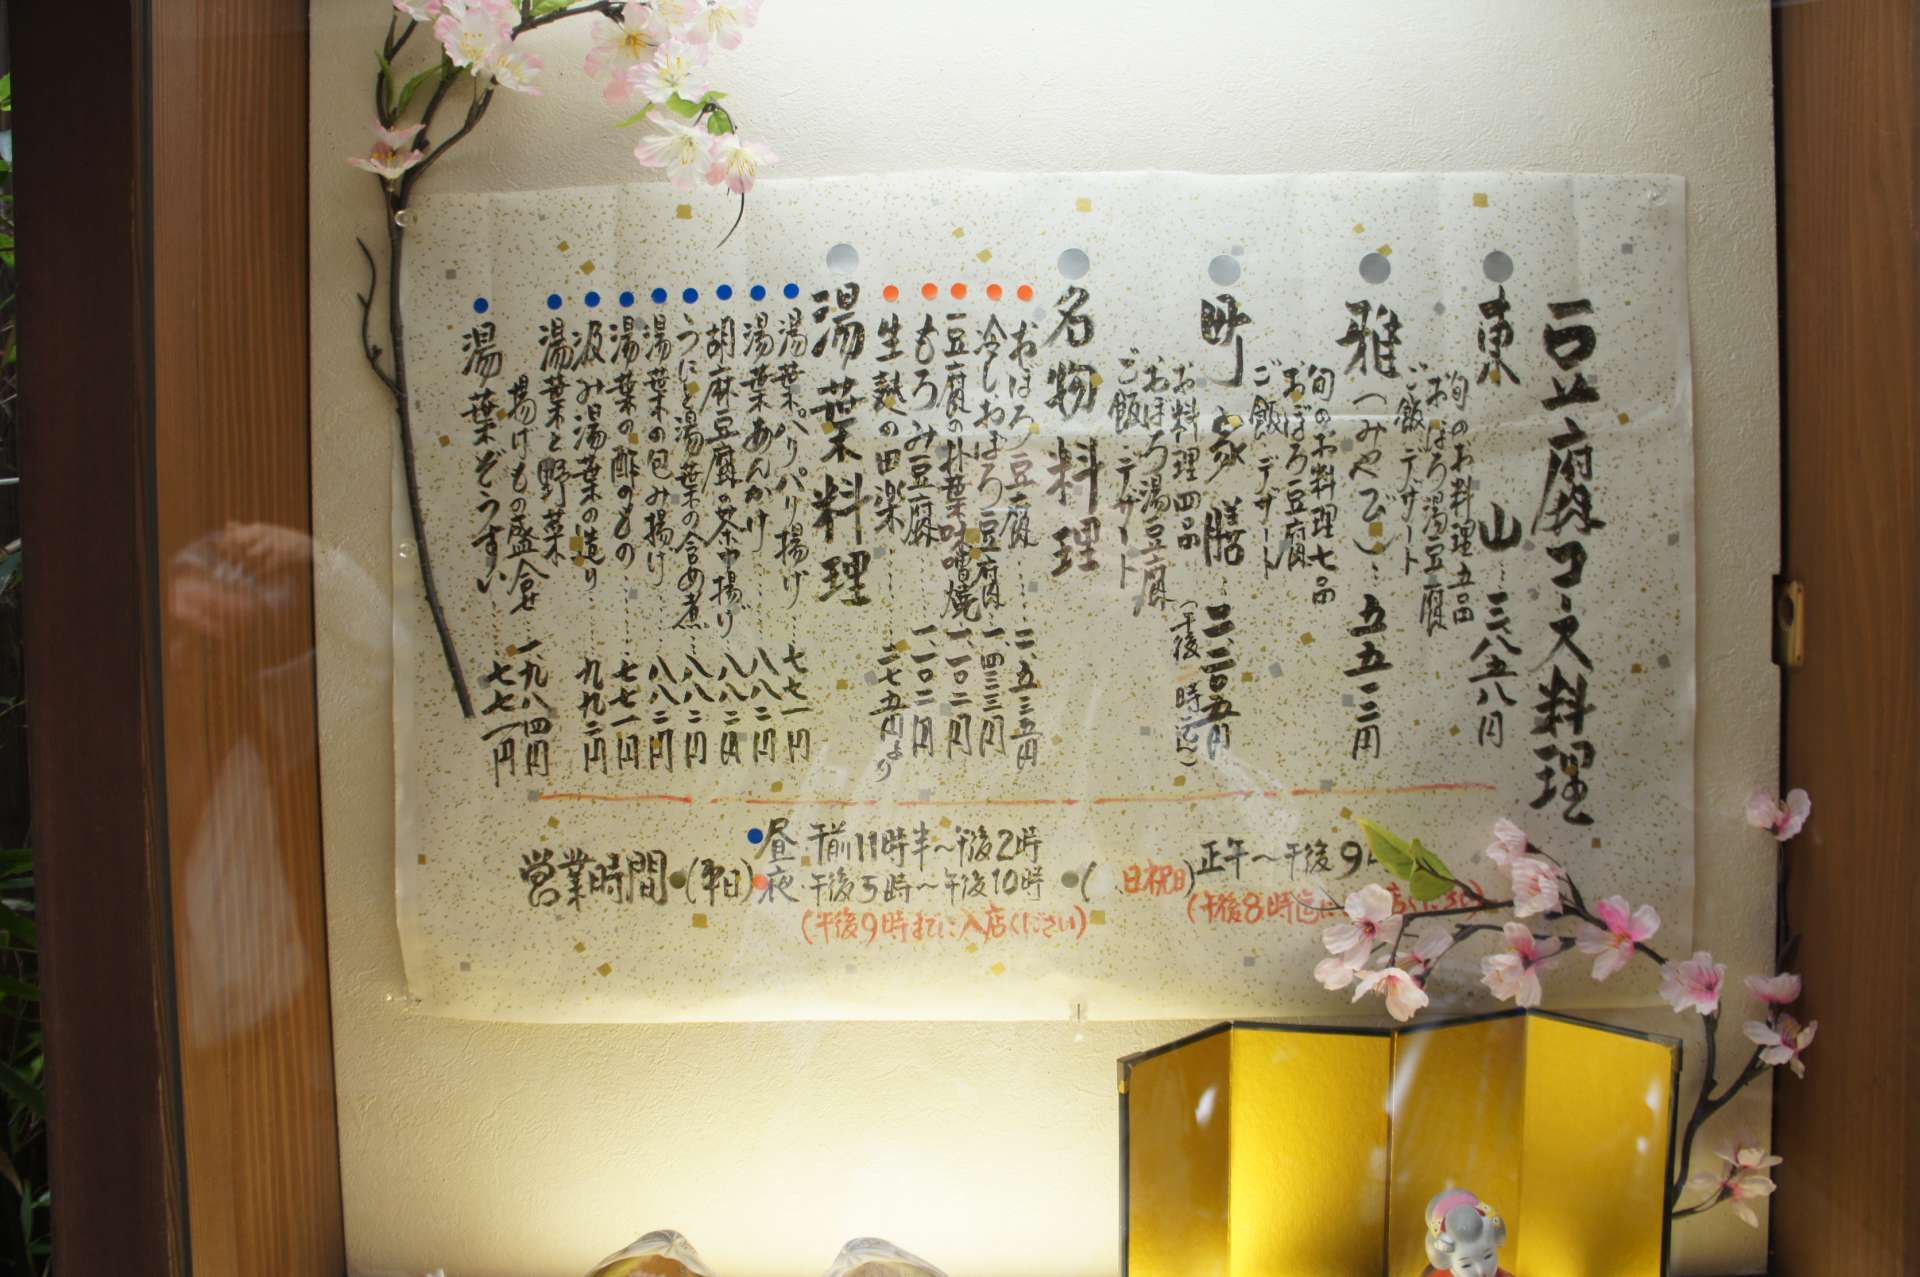 豆腐コース料理
東山…三、八五八円
旬のお料理五品
おぼろ湯豆腐
ご飯 デザート
雅(みやび)…五五一二円
旬のお料理七品
おぼろ豆腐
ご飯 デザート
町家膳…二、二〇五円
(午後 時迄)
お料理四品
おぼろ湯豆腐
ご飯 デザート
名物料理
おぼろ豆腐…二、五三五円
冷しおぼろ豆腐…一、四三三円
豆腐の朴葉味噌焼 一、一〇二円
もろみ豆腐 一、一〇二円
生麩の田楽 二七五円より
湯葉料理
湯葉パリパリ揚げ 七七一円
湯葉あんかけ 八八二円
胡麻豆腐の茶巾揚げ 八八二円
うにと湯葉の含め煮 八八二円
湯葉の包み揚げ 八八二円
湯葉の酢のもの 七七一円
汲み湯葉の造り 九九二円
湯葉と野菜
揚げもの盛合せ 一九八四円
湯葉ぞうすい 七七一円
営業時間 (平日)
昼 午前11時半〜午後2時
夜 午後5時〜午後10時
(午後9時までに入店ください)
(日祝日) 正午〜午後9
(午後8時迄に